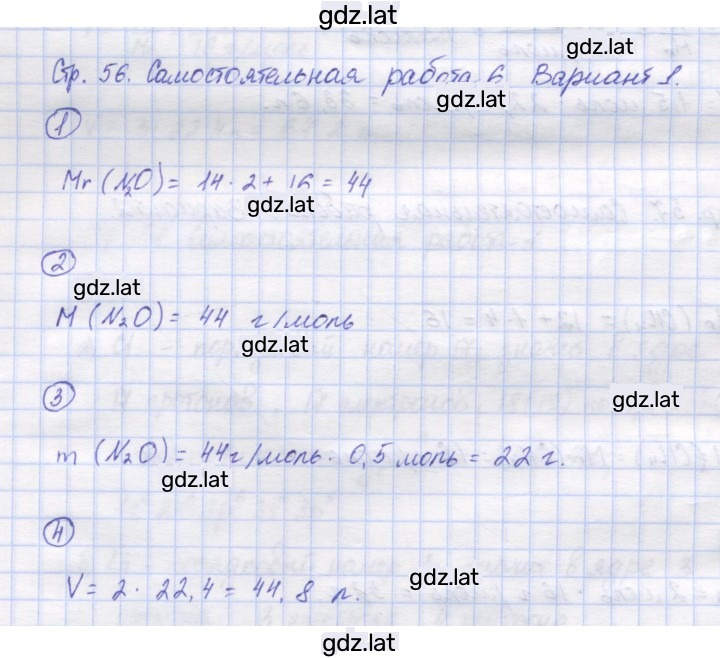 gdz.lat
gdz.lat
Стр. 56. Самостоятельная работа 6 Вариант 1.
gdz.lat
1
Mr (N2O) = 14 · 2 + 16 = 44
gdz.lat
2
gdz.lat
M (N2O) = 44 г/моль
gdz.lat
3
gdz.lat
m (N2O) = 44г/моль · 0,5 моль = 22 г.
gdz.lat
4
gdz.lat
V = 2 · 22,4 = 44,8 л.
gdz.lat